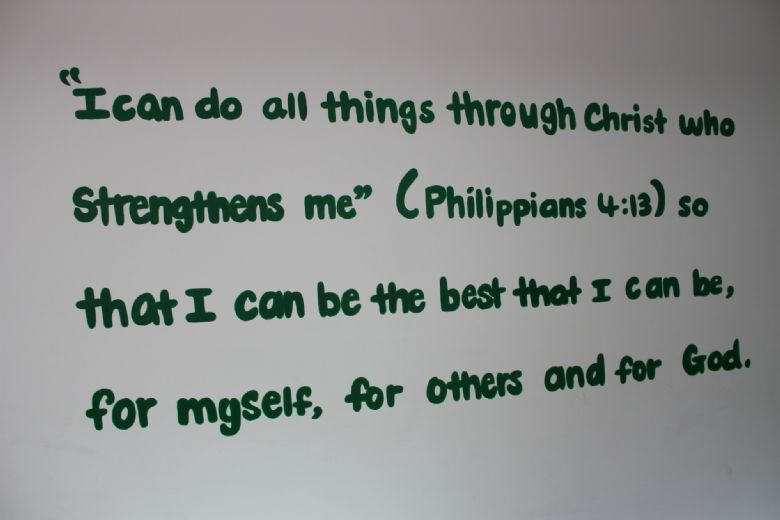 “I can do all things through Christ who
Strengthens me” (Philippians 4:13) so
that I can be the best that I can be,
for myself, for others and for God.